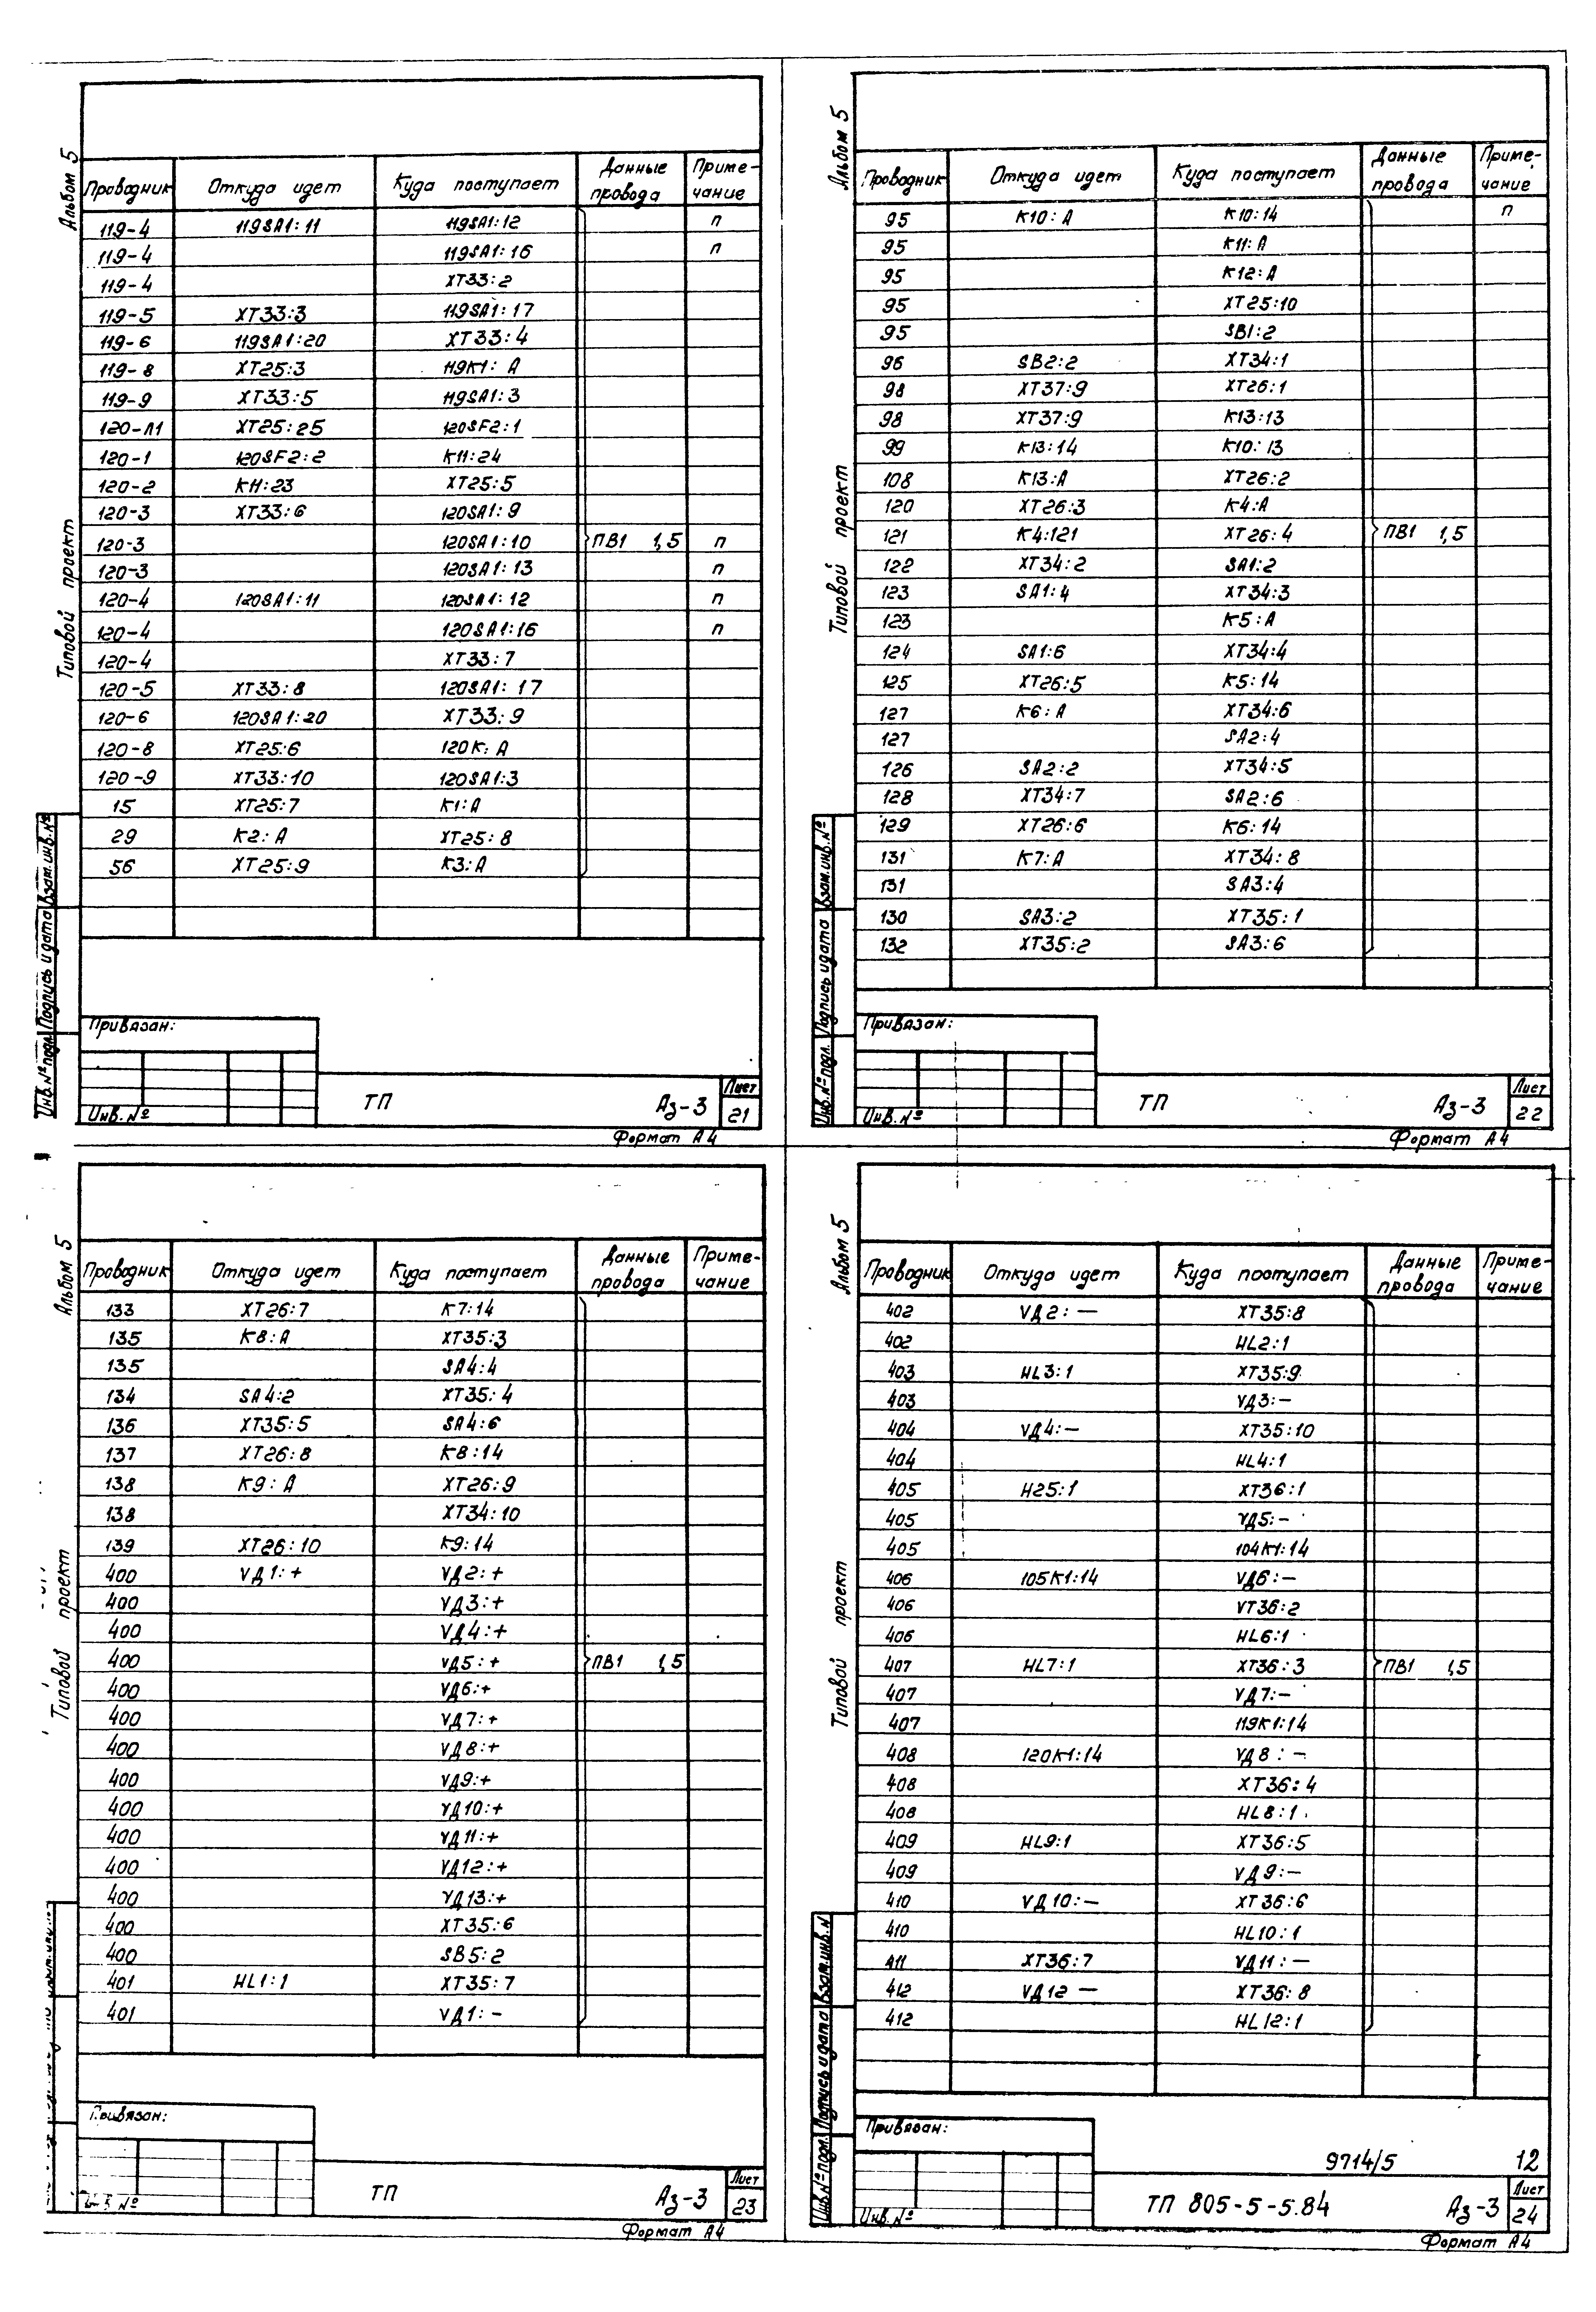 Альбом 5
Типовой проект
Проводник Откуда идет Куда поступает Данные провода Приме-чание
119-4 119SA1:11 119SA1:12 п
119-4 119SA1:16 п
119-4 XT33:2
119-5 XT33:3 119SA1:17
119-6 119SA1:20 XT33:4
119-8 XT25:3 119К1:А
119-9 XT33:5 119SA1:3
120-Л1 XT25:25 120SF2:1
120-1 120SF2:2 К11:24
120-2 К11:23 XT25:5
120-3 XT33:6 120SA1:9
120-3 120SA1:10 ПВ1 1,5 п
120-3 120SA1:13 п
120-4 120SA1:11 120SA1:12 п
120-4 120SA1:16 п
120-4 XT33:7
120-5 XT33:8 120SA1:17
120-6 120SA1:20 XT33:9
120-8 XT25:6 120К:А
120-9 XT33:10 120SA1:3
15 XT25:7 К1:А
29 К2:А XT25:8
56 XT25:9 К3:А
Инв.№ подл. Подпись и дата Взам.инв.№
Привязан:
Инв.№
ТП Аз-3 Лист 21
Формат А4
Альбом 5
Типовой проект
Проводник Откуда идет Куда поступает Данные провода Приме-чание
95 К10:А К10:14 п
95 К11:А
95 К12:А
95 XT25:10
95 SB1:2
96 SB2:2 XT34:1
98 XT37:9 XT26:1
98 XT37:9 К13:13
99 К13:14 К10:13
108 К13:А XT26:2
120 XT26:3 К4:А
121 К4:121 XT26:4 ПВ1 1,5
122 XT34:2 SA1:2
123 SA1:4 XT34:3
123 К5:А
124 SA1:6 XT34:4
125 XT26:5 К5:14
127 К6:А XT34:6
127 SA2:4
126 SA2:2 XT34:5
128 XT34:7 SA2:6
129 XT26:6 К6:14
131 К7:А XT34:8
131 SA3:4
130 SA3:2 XT35:1
132 XT35:2 SA3:6
Инв.№ подл. Подпись и дата Взам.инв.№
Привязан:
Инв.№
ТП Аз-3 Лист 22
Формат А4
Альбом 5
Типовой проект
Проводник Откуда идет Куда поступает Данные провода Приме-чание
133 XT26:7 К7:14
135 К8:А XT35:3
135 SA4:4
134 SA4:2 XT35:4
136 XT35:5 SA4:6
137 XT26:8 К8:14
138 К9:А XT26:9
138 XT34:10
139 XT26:10 К9:14
400 VД1:+ VД2:+
400 VД3:+
400 VД4:+
400 VД5:+ ПВ1 1,5
400 VД6:+
400 VД7:+
400 VД8:+
400 VД9:+
400 VД10:+
400 VД11:+
400 VД12:+
400 VД13:+
400 XT35:6
400 SB5:2
401 HL1:1 XT35:7
401 VД1:-
Привязан:
ТП Аз-3 Лист 23
Формат А4
Альбом 5
Типовой проект
Проводник Откуда идет Куда поступает Данные провода Приме-чание
402 VД2:— XT35:8
402 HL2:1
403 HL3:1 XT35:9
403 VД3:—
404 VД4:— XT35:10
404 HL4:1
405 H25:1 XT36:1
405 VД5:—
405 104К1:14
406 105К1:14 VД6:—
406 VT36:2
406 HL6:1
407 HL7:1 XT36:3 ПВ1 1,5
407 VД7:—
407 119К1:14
408 120К1:14 VД8:—
408 XT36:4
408 HL8:1
409 HL9:1 XT36:5
409 VД9:—
410 VД10:— XT36:6
410 HL10:1
411 XT36:7 VД11:—
412 VД12 — XT36:8
412 HL12:1
Инв.№ подл. Подпись и дата Взам.инв.N
Привязан:
Инв.№
9714/5 12
ТП 805-5-5.84 Аз-3 Лист 24
Формат А4